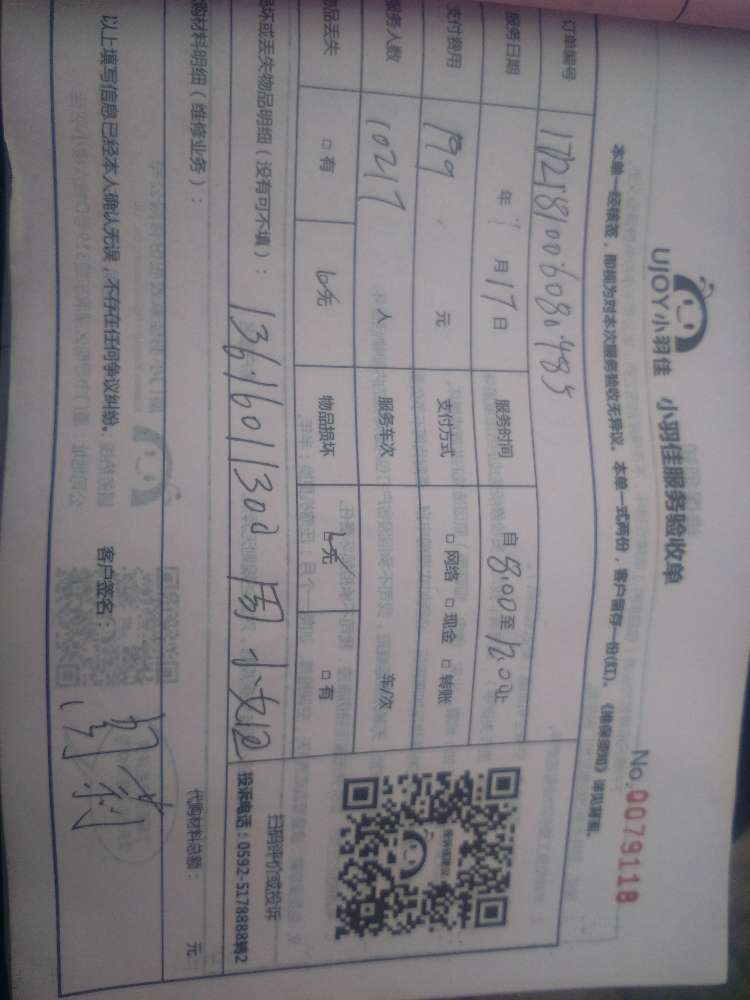 UJOY小羽佳 小羽佳服务验收单
No.0079118
本单一经核签，即视为对本次服务验收无异议。本单一式两份，客户留存一份(红)。《维保须知》详见背面。
订单编号
服务日期 年 月17日 服务时间 自8:00至12:00止
支付费用 199 元 支付方式 □网络 □现金 □转账
服务人数 10217 人 服务车次 车/次
物品丢失 □有 无 物品损坏 无 □有
损坏或丢失物品明细（没有可不填）： 13616011300 周
扫码评价或投诉
投诉电话：0592-5178888转2
购材料明细（维修业务）：
代购材料总额： 元
以上填写信息已经本人确认无误，不存在任何争议纠纷。 客户签名：